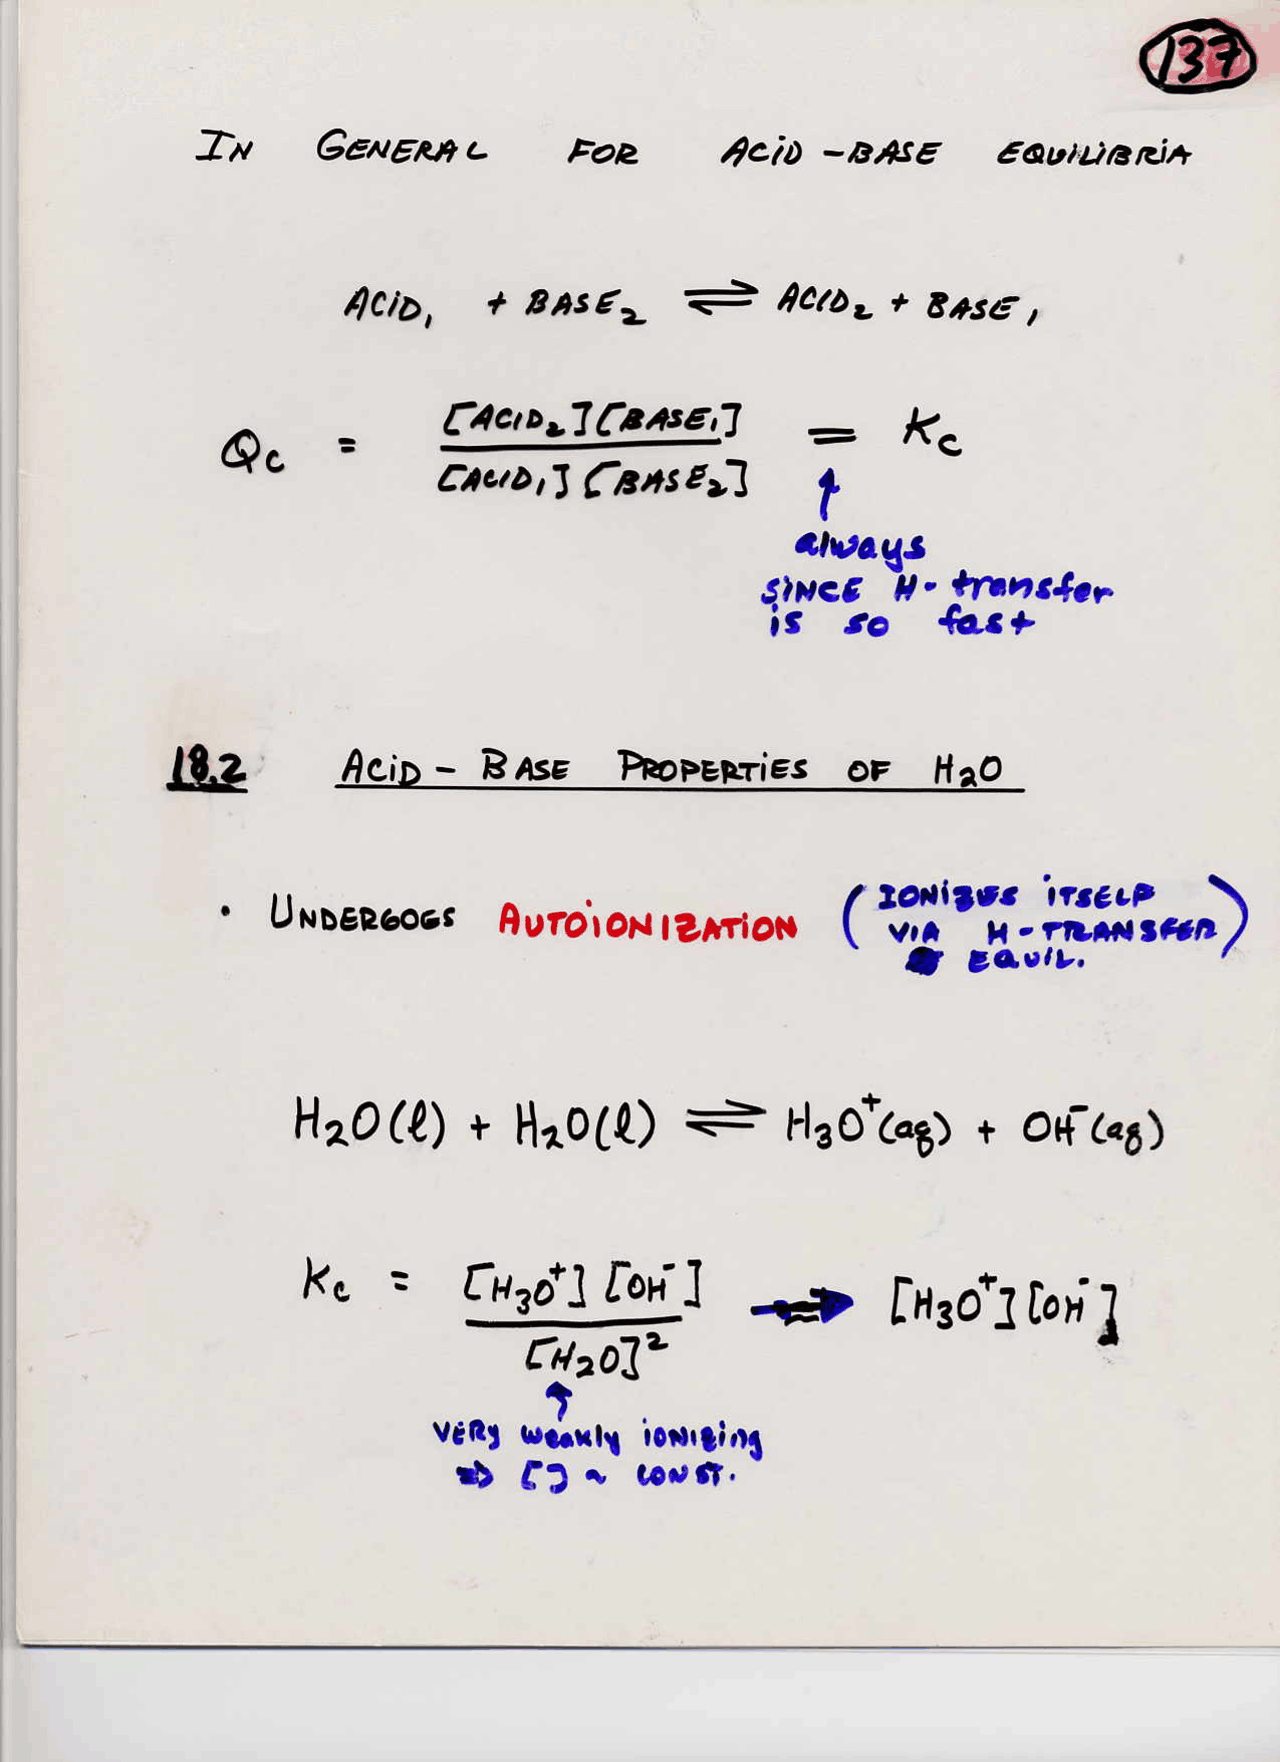 137
IN GENERAL FOR ACID-BASE EQUILIBRIA
ACID₁ + BASE₂ ⇌ ACID₂ + BASE₁
Qc = [ACID₂][BASE₁] / [ACID₁][BASE₂] = Kc
↑
always
SINCE H-transfer
is so fast
18.2 ACID-BASE PROPERTIES OF H₂O
• UNDERGOES AUTOIONIZATION (IONIZES ITSELF
VIA H-TRANSFER)
EQUIL.
H₂O(l) + H₂O(l) ⇌ H₃O⁺(aq) + OH⁻(aq)
Kc = [H₃O⁺][OH⁻] / [H₂O]² ⇒ [H₃O⁺][OH⁻]
↑
VERY weakly ionizing
⇒ [] ~ CONST.